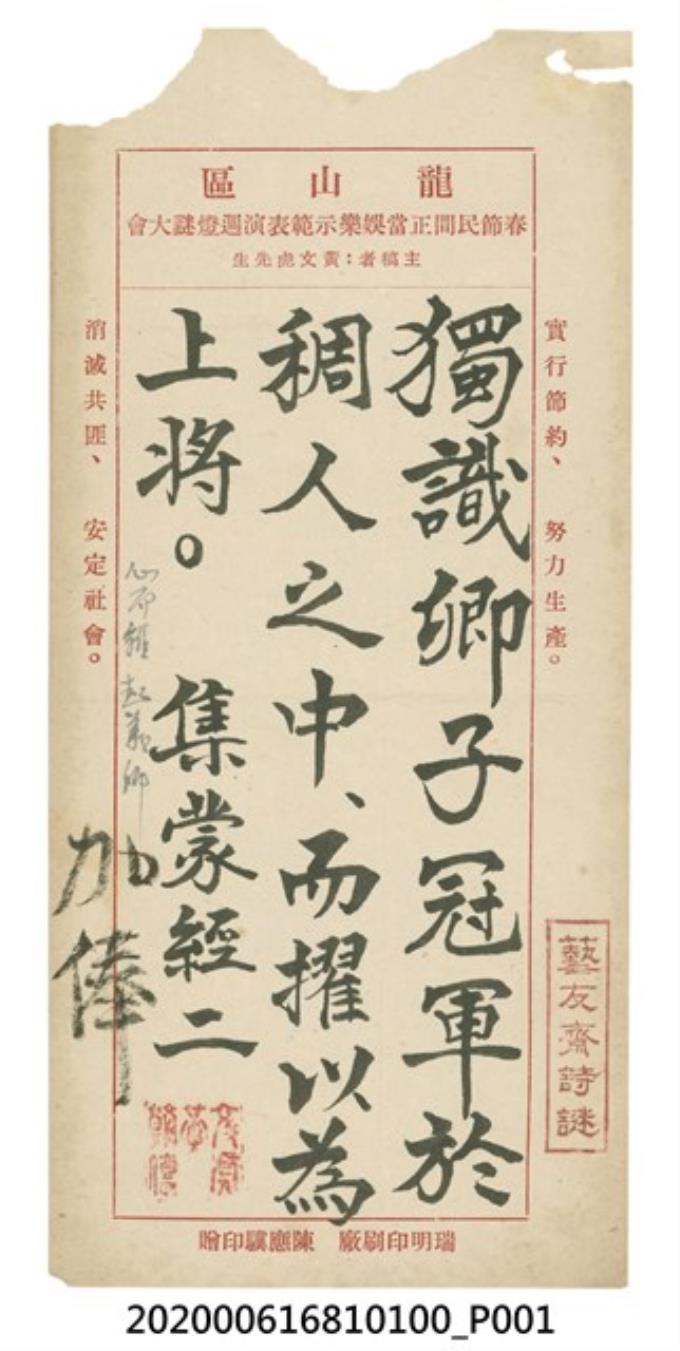 龍山區
春節民間正當娛樂示範表演週燈謎大會
主稿者：黃文虎先生
實行節約、努力生產。
獨識卿子冠軍於
稠人之中、而擢以為
上將。集蒙經二
加俸
消滅共匪、安定社會。
藝友齋詩謎
瑞明印刷廠 陳應驥印贈
202000616810100_P001